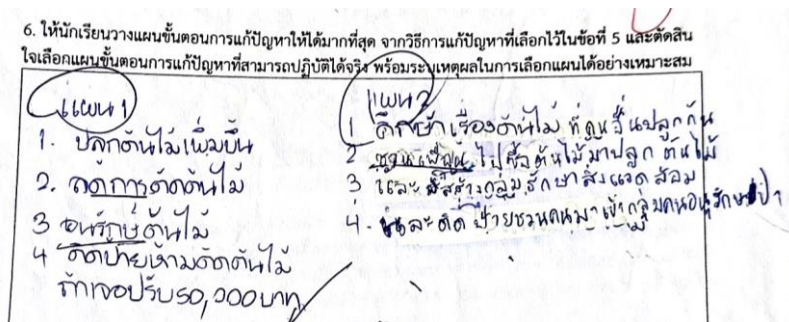 6. ให้นักเรียนวางแผนขั้นตอนการแก้ปัญหาให้ได้มากที่สุด จากวิธีการแก้ปัญหาที่เลือกไว้ในข้อที่ 5 และตัดสิน
ใจเลือกแผนขั้นตอนการแก้ปัญหาที่สามารถปฏิบัติได้จริง พร้อมระบุเหตุผลในการเลือกแผนได้อย่างเหมาะสม
แผน 1
1. ปลูกต้นไม้เพิ่มขึ้น
2. ลดการตัดต้นไม้
3 อนุรักษ์ต้นไม้
4 ติดป้ายห้ามตัดต้นไม้
ถ้าเจอปรับ 50,000 บาท
แผน 2
1 ศึกษาเรื่องต้นไม้ที่คนอื่นปลูกกัน
2 ชวนเพื่อนไปซื้อต้นไม้มาปลูก ต้นไม้
3 และสร้างกลุ่มรักษาสิ่งแวดล้อม
4. และติดป้ายชวนคนมาเข้ากลุ่มคนอนุรักษ์ป่า